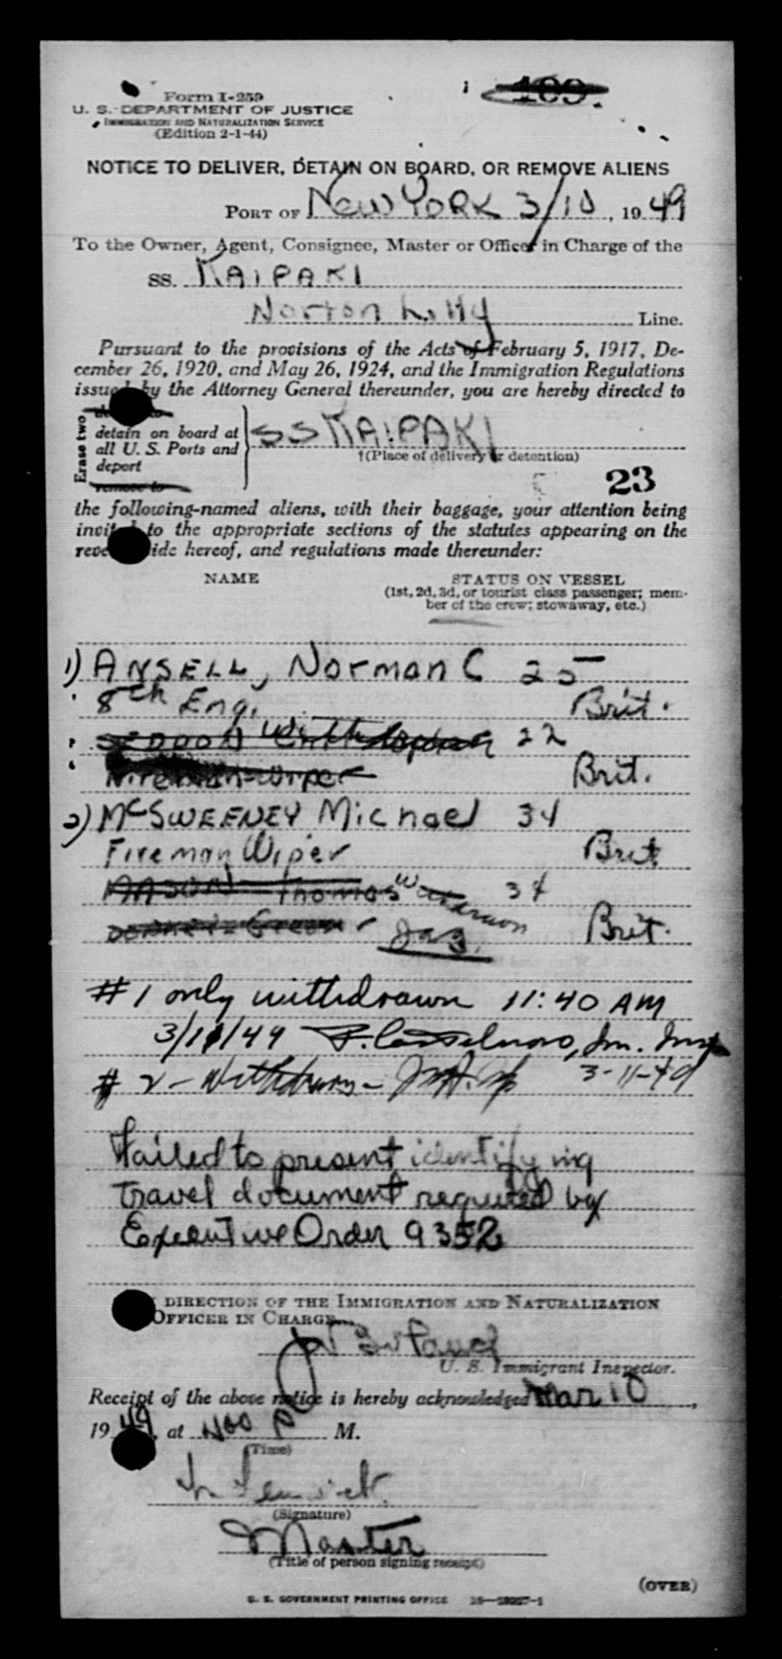 109.
Form I-259
U. S. DEPARTMENT OF JUSTICE
IMMIGRATION AND NATURALIZATION SERVICE
(Edition 2-1-44)
NOTICE TO DELIVER, DETAIN ON BOARD, OR REMOVE ALIENS
PORT OF New York 3/10, 1949
To the Owner, Agent, Consignee, Master or Officer in Charge of the
SS. KAIPAKI
Norton Lilly Line.
Pursuant to the provisions of the Acts of February 5, 1917, De-
cember 26, 1920, and May 26, 1924, and the Immigration Regulations
issued by the Attorney General thereunder, you are hereby directed to
Erase two
detain on board at
all U. S. Ports and
deport
remove to
SS KAIPAKI
†(Place of delivery or detention)
23
the following-named aliens, with their baggage, your attention being
invited to the appropriate sections of the statutes appearing on the
reverse side hereof, and regulations made thereunder:
NAME
STATUS ON VESSEL
(1st, 2d, 3d, or tourist class passenger; mem-
ber of the crew; stowaway, etc.)
1) ANSELL, Norman C 25
8th Eng. Brit.
SEDDON 22
Fireman Wiper Brit.
2) McSWEENEY Michael 34
Fireman Wiper Brit
MASON Thomas 34
Donkey Greaser Brit.
#1 only withdrawn 11:40 AM
3/11/49
#2 - Withdrawn - 3-11-49
Failed to present identifying
travel document required by
Executive Order 9352
DIRECTION OF THE IMMIGRATION AND NATURALIZATION
OFFICER IN CHARGE
U. S. Immigrant Inspector.
Receipt of the above notice is hereby acknowledged Mar 10,
1949, at 400 P M.
(Time)
(Signature)
Master
(Title of person signing receipt)
(OVER)
U. S. GOVERNMENT PRINTING OFFICE